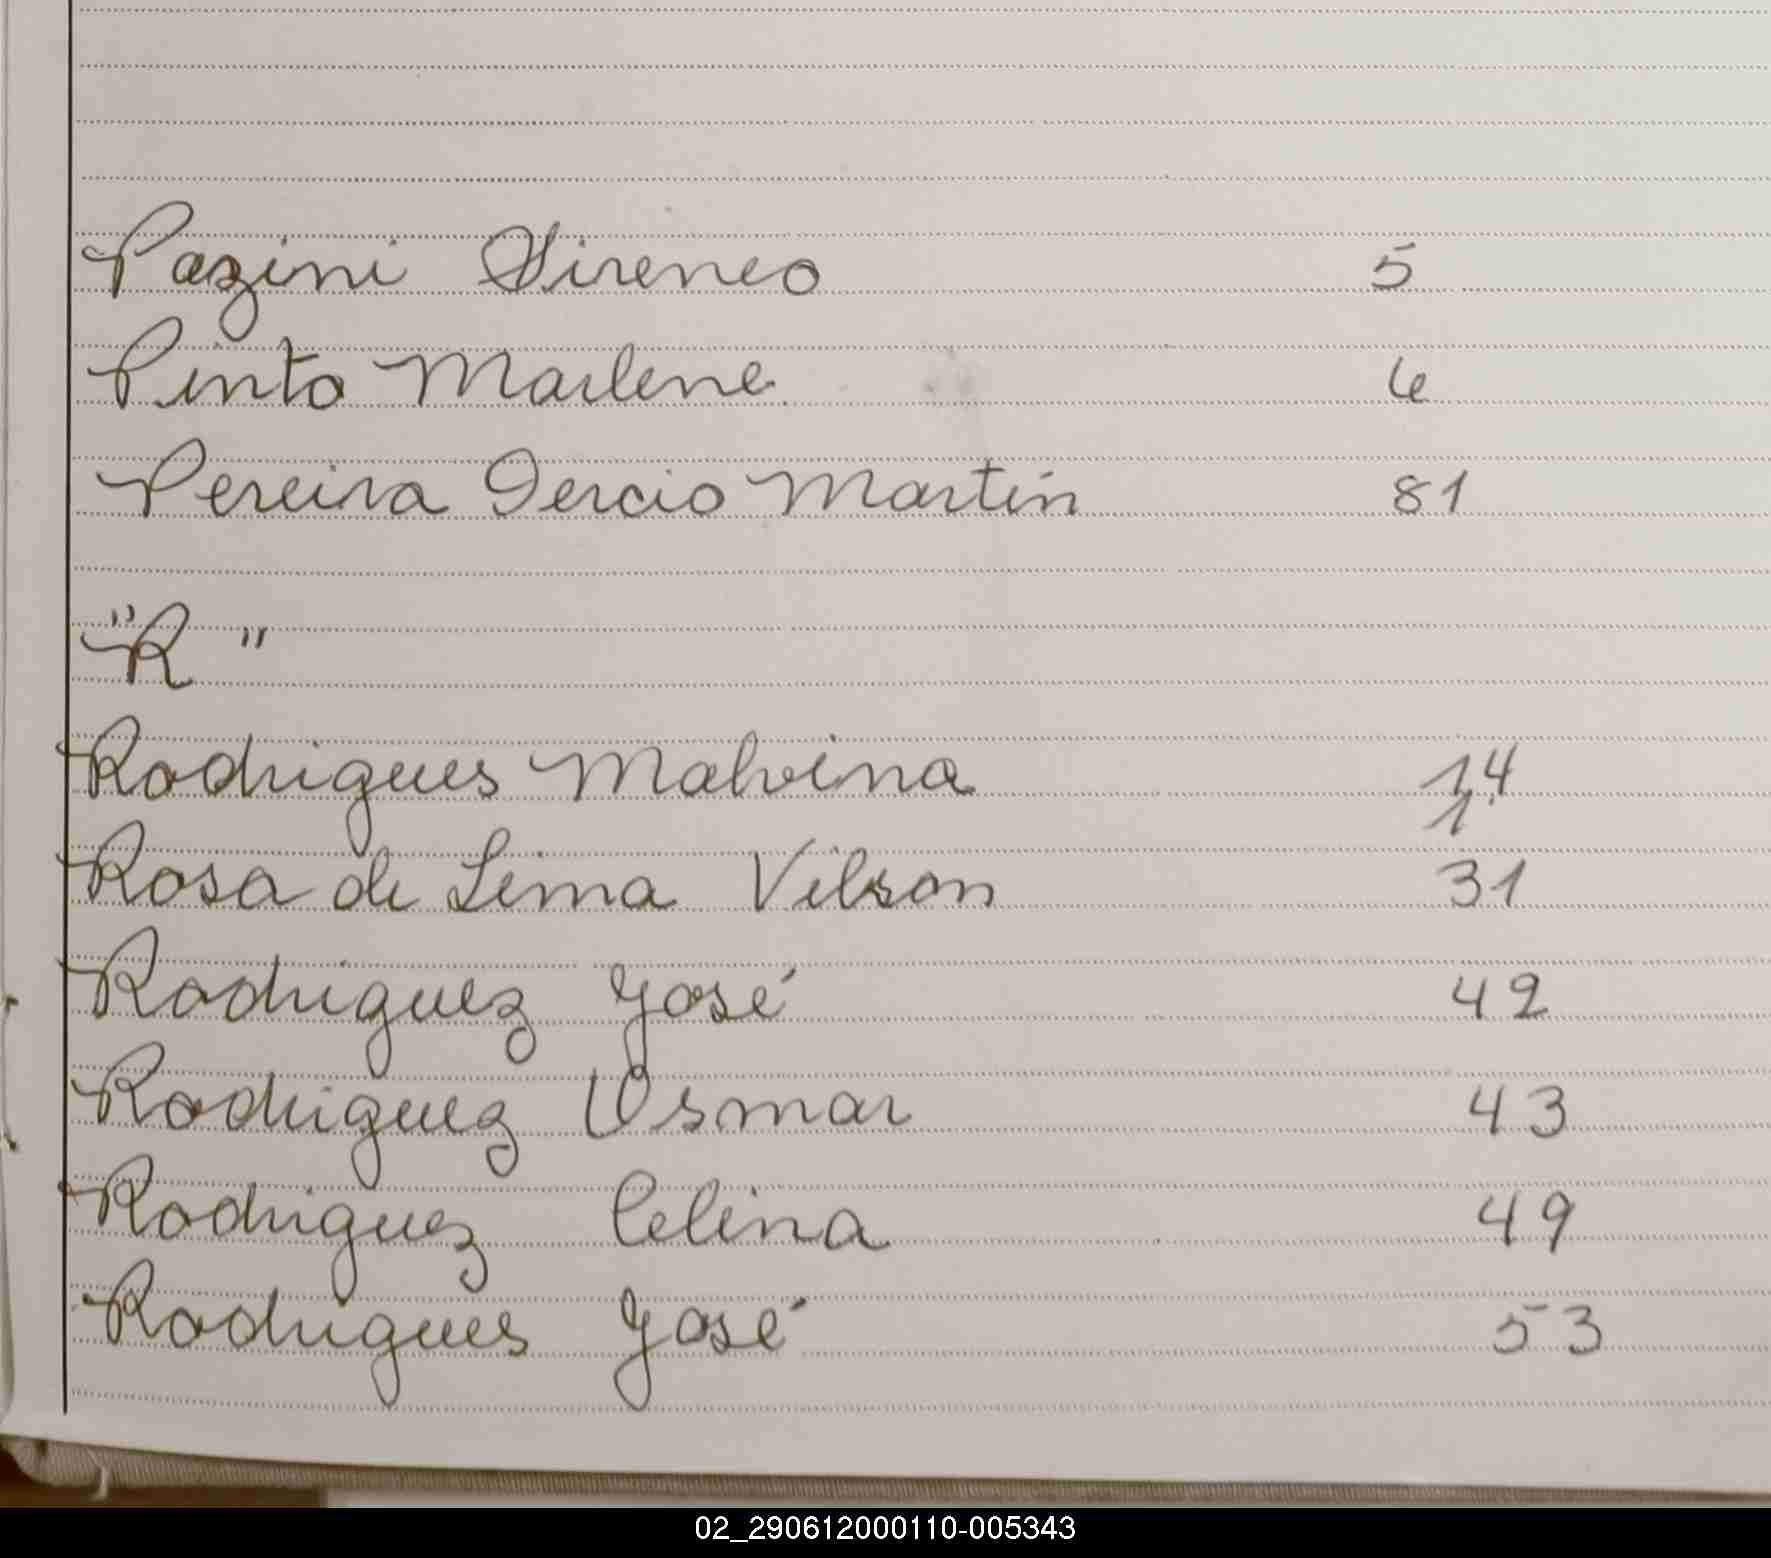 Pazini Sireneo 5
Pinto Marlene 6
Pereira Tercio Martin 81
"R"
Rodrigues Malvina 14
1
Rosa de Lima Vilson 31
Rodriguez José 42
Rodriguez Osmar 43
Rodriguez Celina 49
Rodrigues José 53
02_290612000110-005343